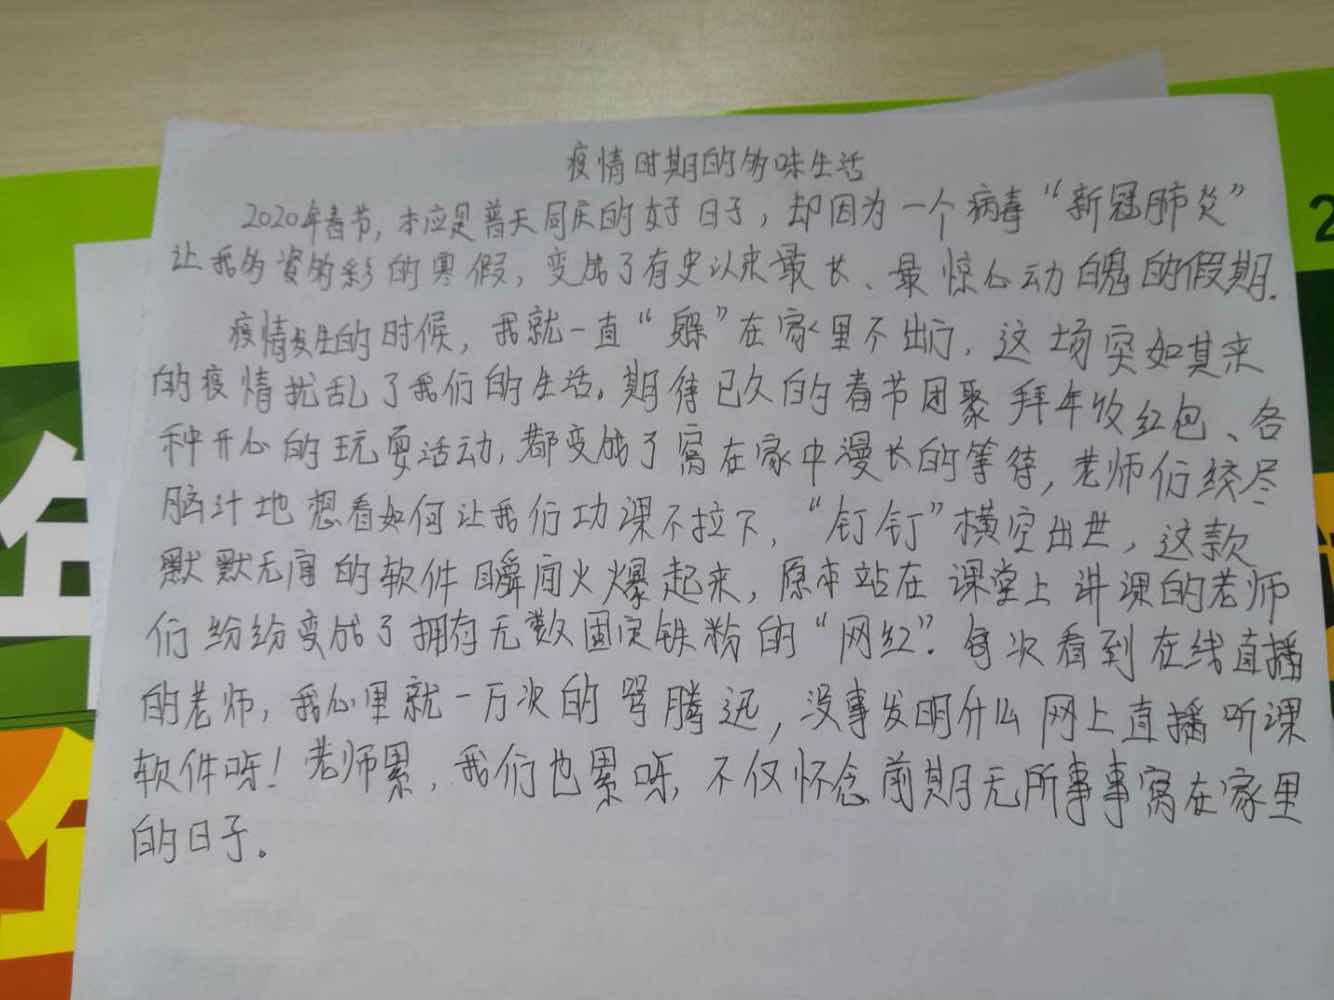 疫情时期的多味生活
2020年春节,本应是普天同庆的好日子,却因为一个病毒“新冠肺炎”
让我多资多彩的寒假,变成了有史以来最长、最惊心动魄的假期.
疫情发生的时候,我就一直“躲”在家里不出门.这场突如其来
的疫情扰乱了我们的生活。期待已久的春节团聚拜年收红包、各
种开心的玩耍活动,都变成了窝在家中漫长的等待,老师们绞尽
脑汁地想着如何让我们功课不拉下,“钉钉”横空出世,这款
默默无闻的软件瞬间火爆起来,原本站在课堂上讲课的老师
们纷纷变成了拥有无数固定铁粉的“网红”.每次看到在线直播
的老师,我心里就一万次的骂腾迅,没事发明什么网上直播听课
软件呀!老师累,我们也累呀,不仅怀念前期无所事事窝在家里
的日子。
2
年